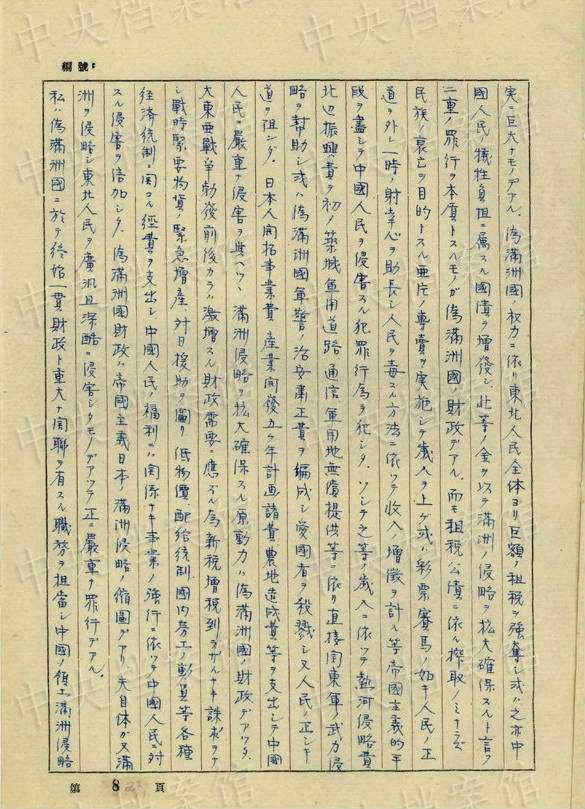 編號:
実ニ巨大ナモノデアル。偽滿洲國ノ权力ニ依リ東北人民全体ヨリ巨額ノ租税ヲ強奪シ或ハ之亦中
國人民ノ犠牲負担ニ属スル國債ヲ増發シ、此等ノ金ヲ以テ滿洲ノ侵略ヲ拡大確保スルト言フ
二重ノ罪行ヲ本質トスルモノガ偽滿洲國ノ財政デアル、而モ租税公債ニ依ル搾取ノミナラズ
民族ノ衰亡ヲ目的トスル亜片ノ專賣ヲ実施シテ歳入ヲ上ゲ或ハ彩票賽馬ノ如キ人民ノ正
道ヲ外レ一時ノ射幸心ヲ助長シ人民ヲ毒スル方法ニ依ツテ收入ノ増徴ヲ計ル等帝國主義的手
段ヲ盡シテ中國人民ヲ侵害スル犯罪行為ヲ犯シタ、ソシテ之等ノ歳入ニ依ツテ熱河侵略費
北辺振興費ヲ初メ築城、軍用道路、通信、軍用地無償提供等ニ依リ直接関東軍ノ武力侵
略ヲ幇助シ或ハ偽滿洲國軍警ノ治安肅正費ヲ編成シ愛國者ヲ殺戮シ又人民ノ正シキ
道ヲ阻ンダ、日本人開拓事業費、産業開發五ヶ年計画諸費、農地造成費等ヲ支出シテ中國
人民ニ嚴重ナ侵害ヲ與ヘツヽ滿洲侵略ヲ拡大確保スル原動力ハ偽滿洲國ノ財政デアツタ、
大東亜戦争勃發前後カラハ激増スル財政需要ニ應ズル為新税増税到ラザルナキ誅求ヲナ
シ戦時緊要物資ノ緊急増産、対日援助ヲ圖リ低物價配給統制、國内勞工ノ動員等各種
経済統制ニ関スル經費ヲ支出シ中國人民ノ福利ニハ関係ナキ事業ノ強行ニ依ツテ中國人民ニ対
スル侵害ヲ倍加シタ、偽滿洲國財政ハ帝國主義日本ノ滿洲侵略ノ縮圖デアリ夫自体ガ又滿
洲ヲ侵略シ東北人民ヲ廣汎且深酷ニ侵害シタモノデアツテ正ニ嚴重ナ罪行デアル。
私ハ偽滿洲國ニ於テ終始一貫財政ト重大ナ関聯ヲ有スル職務ヲ担當シ中國ノ領土滿洲侵略
第 8 頁